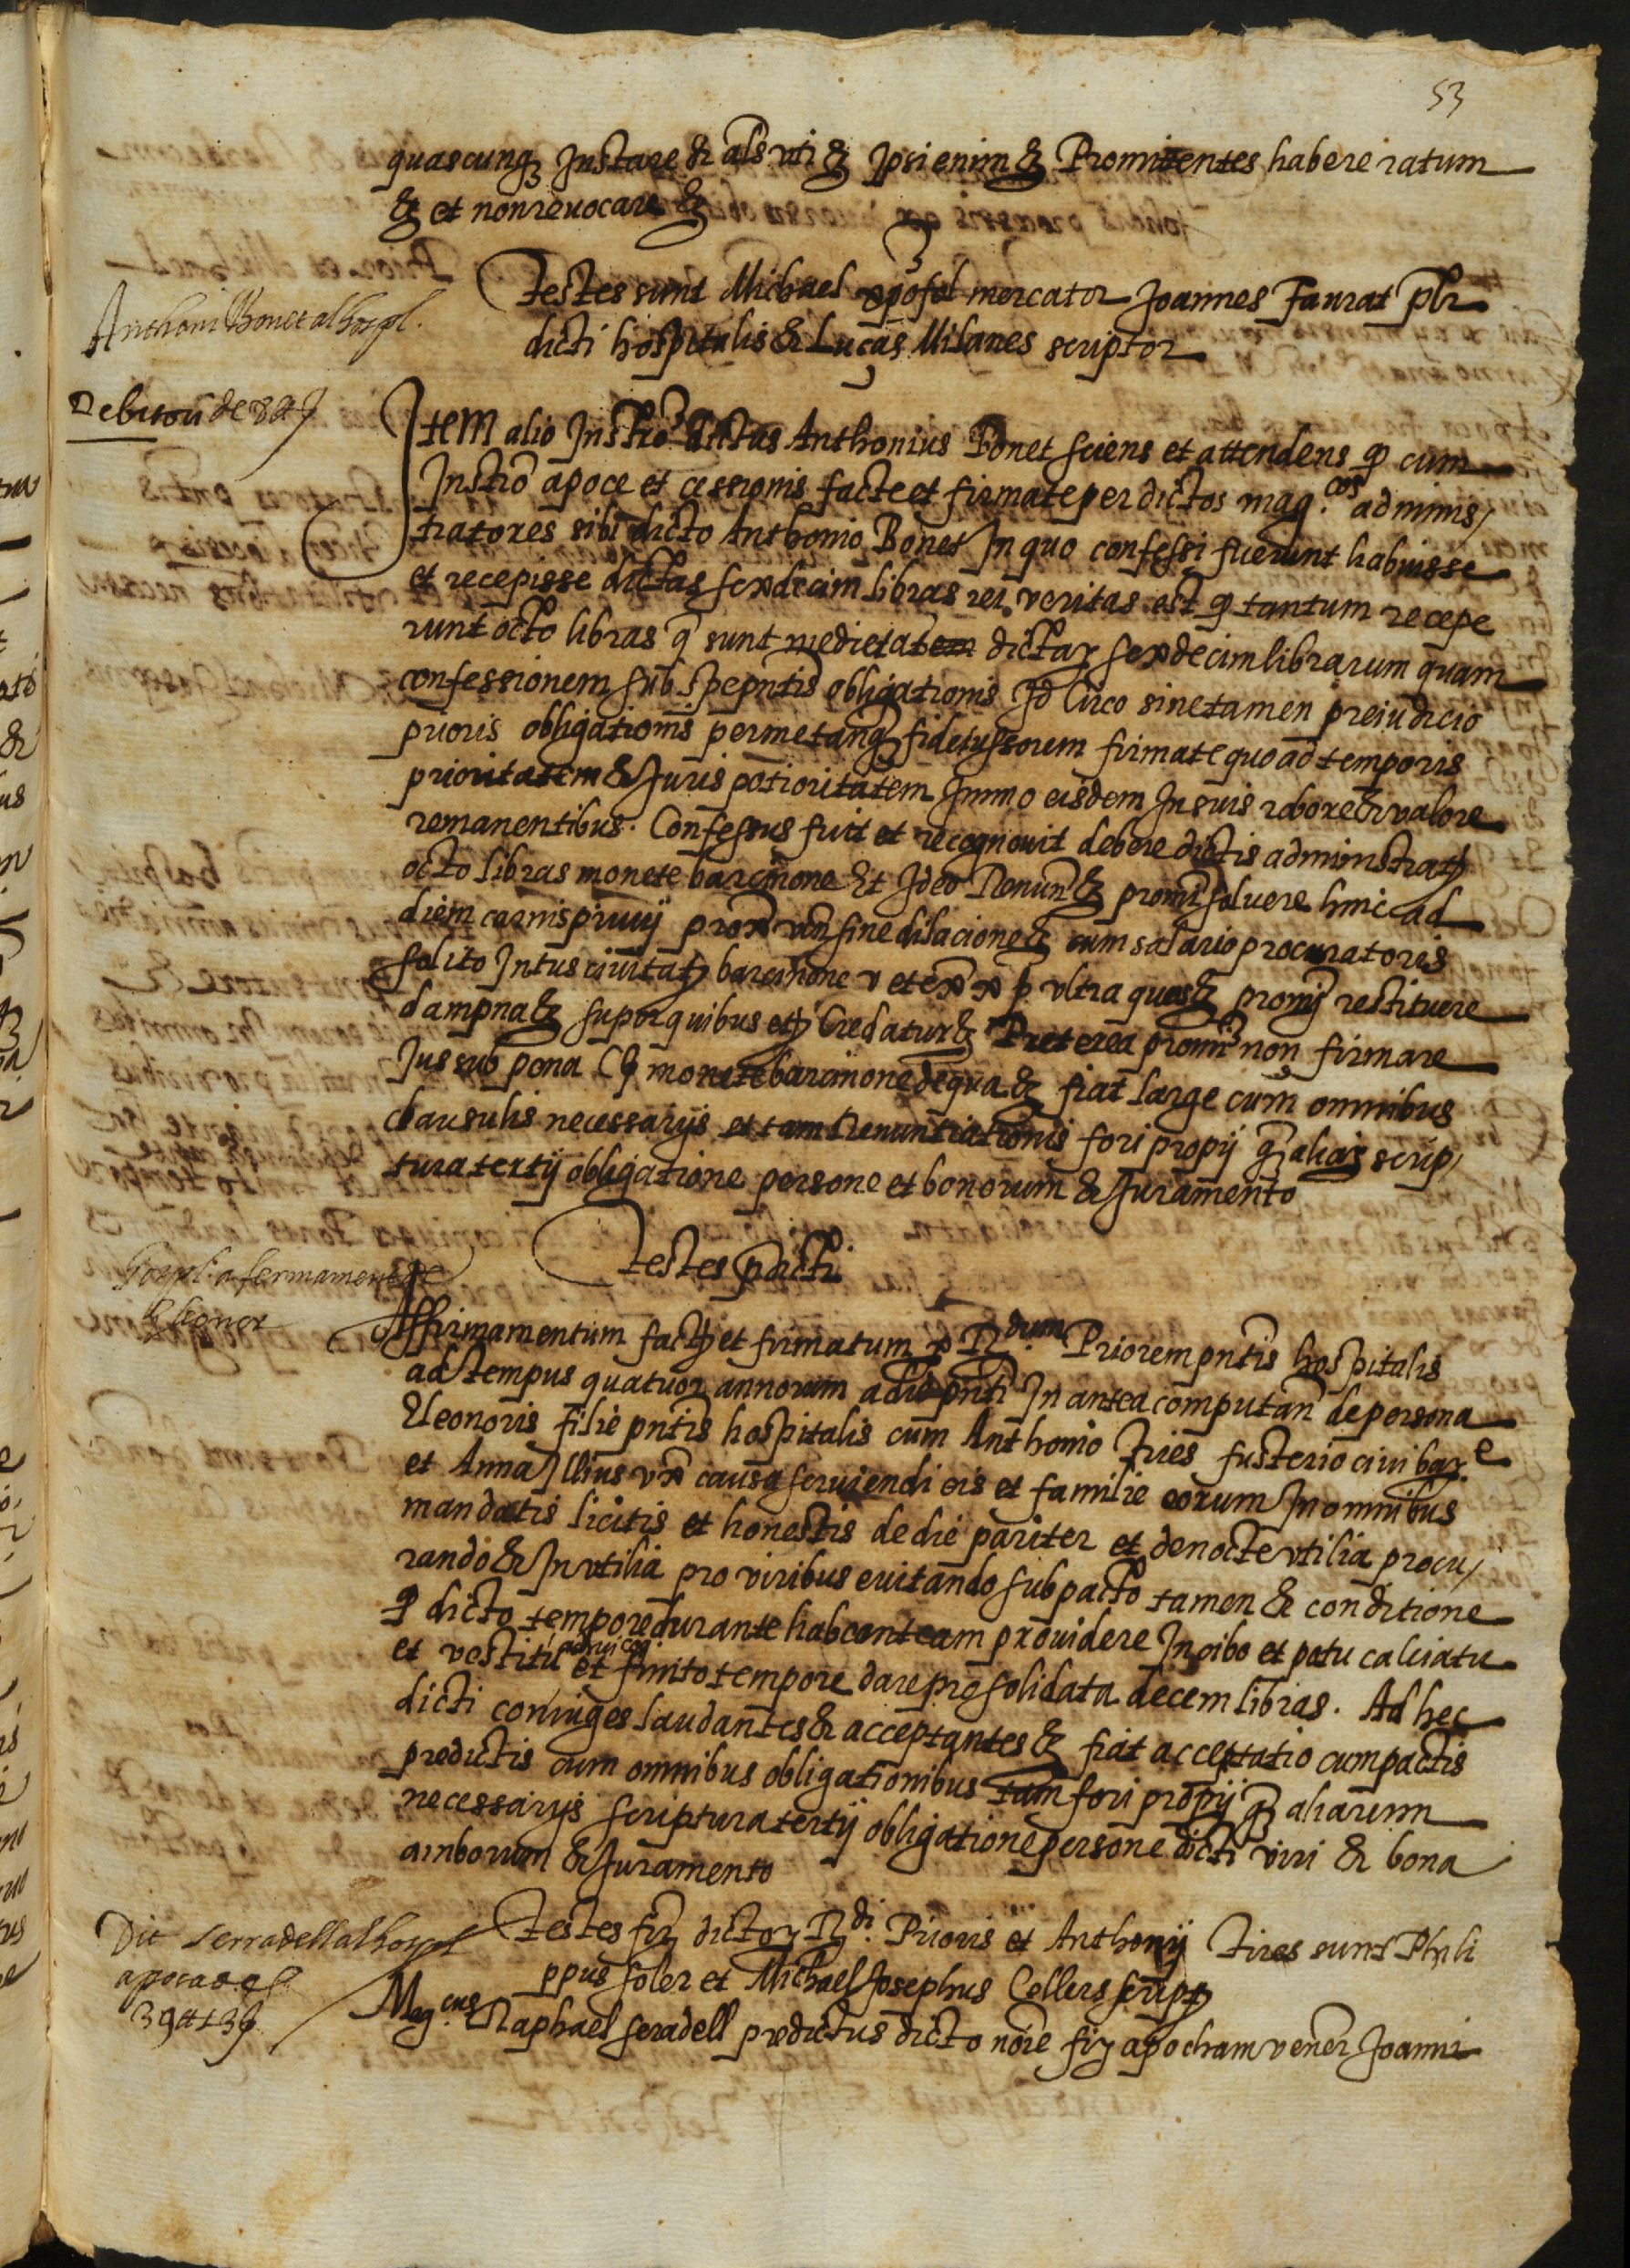 53
quascunq₃ Instare & als uti & Ipsi enim & Promitentes habere ratum
& et non revocare &
Testes sunt Michael xpofol mercator Joannes Faurat pbr
dicti hospitalis & Lucas Milanes scriptor
Anthoni Bonet al hospl.
Debitori de 8 ₶
Item alio Instro dictus Anthonius Bonet sciens et attendens q cum
Instro apoce et cessionis facte et firmate per dictos mag.cos adminis/
tratores sibi dicto Anthonio Bonet In quo confessi fuerunt habuisse
et recepisse dictas sexdecim libras rei veritas est q tantum recepe
runt octo libras q sunt medietatem dictar sexdecim librarum quam
confessionem sub spe pntis obligationis Id Circo sine tamen preiudicio
prioris obligationis per me tanq₃ fideiussorem firmate quo ad temporis
prioritatem & Juris potioritatem Immo eisdem In suis robore & valore
remanentibus. Confessus fuit et recognovit debere dictis administrat
octo libras monete barcinone Et Ideo Renun & promi solvere hinc ad
diem carnisprivij prox ven sine dilacione & cum salario procuratoris
solito Intus civitat barcinone v et ex x s ultra quos & promi restituere
dampna & super quibus et Credatur & Preterea promi non firmare
Jus sub pena C s monete barcinone de qua & fiat large cum omnibus
clausulis necessarijs et tam Renuntiationis fori proprij q alias scrip/
tura tertij obligatione persone et bonorum & Juramento
Testes pdicti
Hospl. afermament de
Elionor
Affirmamentum fact et firmatum p R.dum Priorem pntis hospitalis
ad tempus quatuor annorum a die pnti In antea computan de persona
Eleonoris filie pntis hospitalis cum Anthonio Tries fusterio civi bar.e
et Anna Illius ux causa serviendi eis et familie eorum In omnibus
mandatis licitis et honestis de die pariter et de nocte utilia procu/
rando & Inutilia pro viribus evitando sub pacto tamen & conditione
q dicto tempore durante habeant eam providere In cibo et potu calciatu
et vestitu et finito tempore dare pro solidata decem libras. Ad hec
dicti coniuges laudantes & acceptantes & fiat acceptatio cum pactis
predictis cum omnibus obligationibus tam fori proprij q₃ aliarum
necessarijs scriptura tertij obligatione persone dicti viri & bona
amborum & Juramento
Testes fir dictor R.di Prioris et Anthonij Tires sunt Phili
ppus soler et Michael Josephus Cellers script
Dit Serradell al hospl
apoca de
39 ₶ 13 s
Mag.cus Raphael seradell predictus dicto noie fir apocham vener Joanni